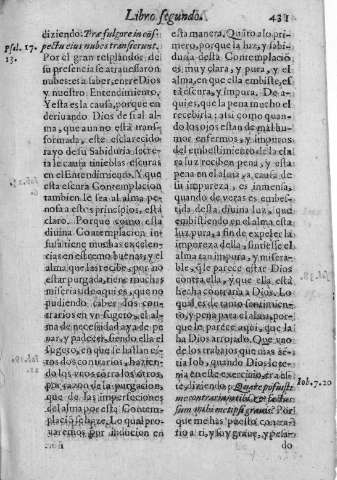 Libro segundo. 431
diziendo: Præ fulgore in cōs-
pectu eius nubes transierunt.
Psal. 17.
13.
Por el gran resplandor de
su presencia se atrauessaron
nubes: esto es, entre Dios
y nuestro Entendimiento.
Y esta es la causa, porque en
deriuando Dios de si al al-
ma, que aun no està trans-
formada, este esclarecido
rayo de su Sabiduria, secre-
ta le causa tinieblas escuras
en el Entendimiento. Y que
esta escura Contemplacion
tambien le sea al alma pe-
nosa a estos principios, està
claro. Porque como esta
diuina Contemplacion in-
fusa tiene muchas excelen-
cias en estremo buenas, y el
alma que las recibe, por no
estar purgada, tiene muchas
miserias: de aqui es, que no
pudiendo caber dos con-
trarios en vn sugeto, el al-
ma de necesidad aya de pe-
nar, y padecer, siendo ella el
sugeto, en que se hallan es-
tos dos contrarios, hazien-
do los vnos contra los otros,
por razon de la purgacion,
que de las imperfeciones
del alma por esta Contem-
placion se haze. Lo qual pro-
uaremos por induccion en
esta manera. Quāto a lo pri-
mero, porque la luz, y sabi-
duria desta Contemplaciō
es muy clara, y pura, y el
alma, en que ella embiste, es-
tà escura, y impura. De a-
qui es, que la pena mucho el
recebirla: assi como quan-
do los ojos estan de mal hu-
mor enfermos, y impuros
del embestimiento de la cla-
ra luz reciben pena, y esta
pena en el alma, a causa de
su impureza, es inmensa,
quando de veras es embes-
tida desta diuina luz, que
embistiendo en el alma esta
luz pura, a fin de expeler la
impureza della, sintiesse el
alma tan impura, y misera-
ble, q̃ le parece estar Dios
contra ella, y que ella està
hecha contraria a Dios. Lo
qual es de tanto sentimien-
to, y pena para el alma, por-
que le parece aqui, que la
ha Dios arrojado. Que vno
de los trabajos que mas sen-
tia Iob, quando Dios le te-
nia en este exercicio, era es-
te, diziendo: Quare posuisti
Iob. 7. 20
me contrarium tibi, & factus
sum mihi metipsi grauis? Por
que me has puesto contra-
rio a ti, y soy graue, y pesa-
do